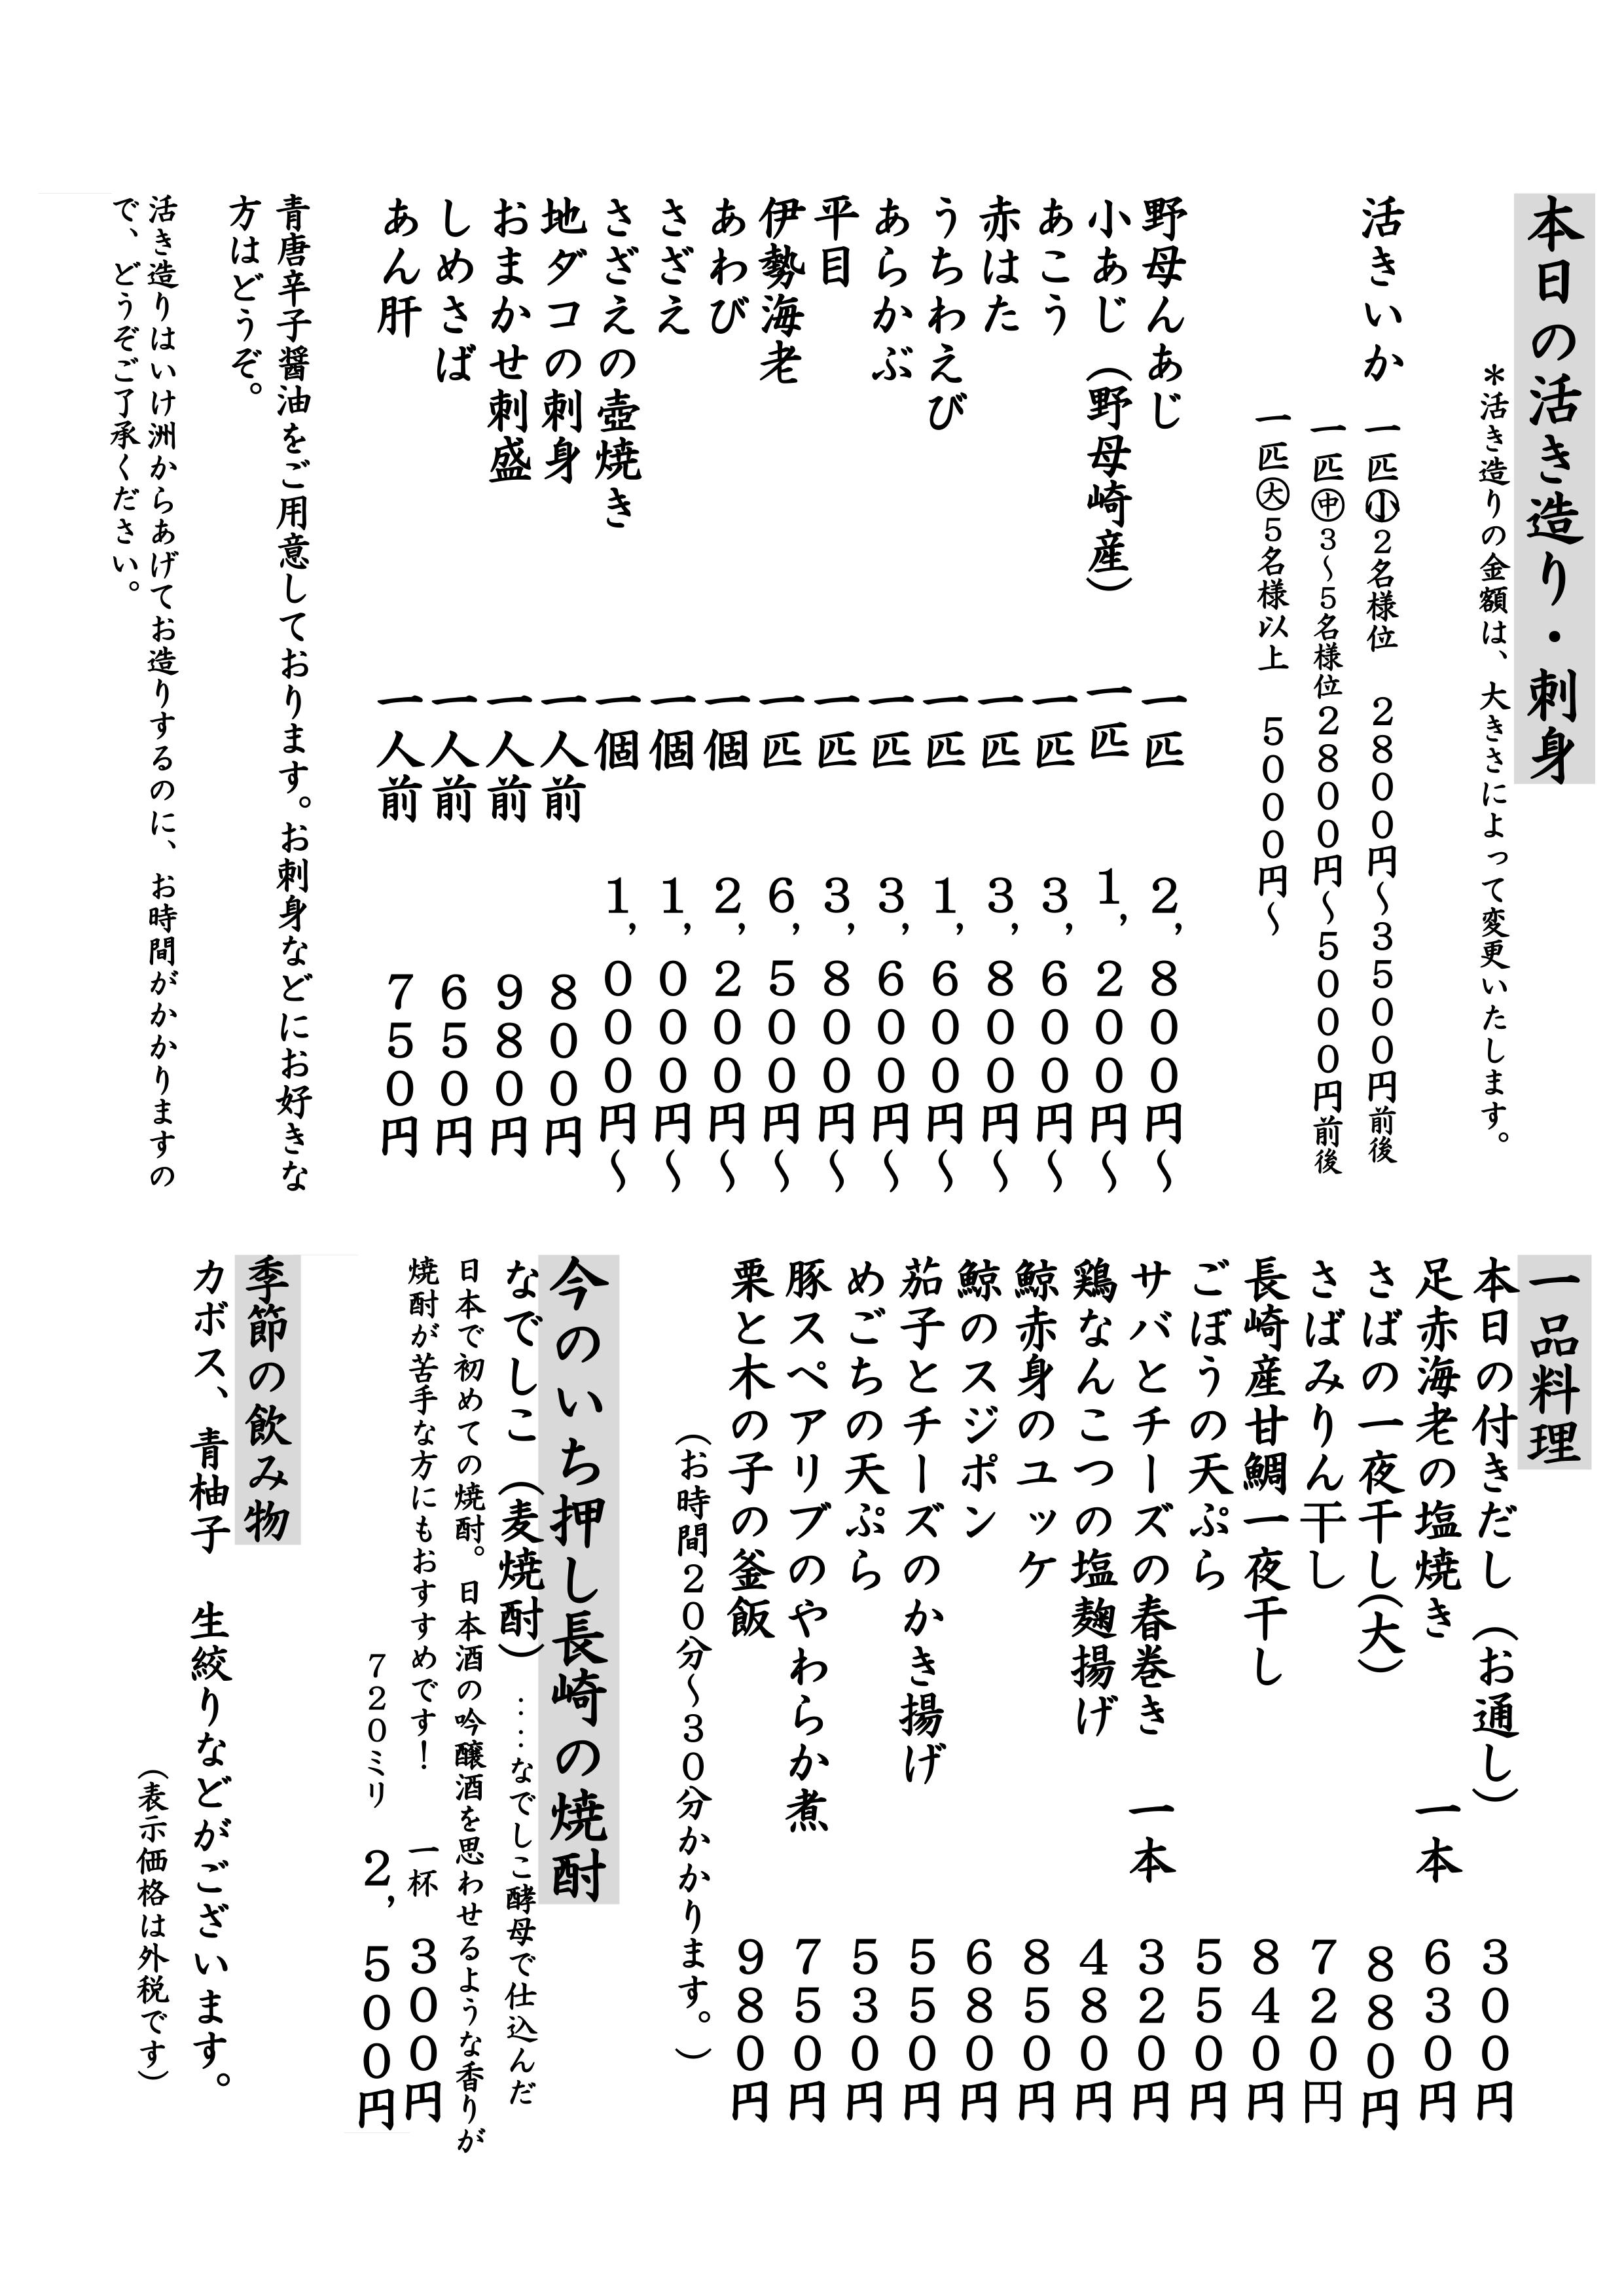 本日の活き造り・刺身
＊活き造りの金額は、大きさによって変更いたします。
活きいか　一匹㊙小２名様位　２８００円～３５００円前後
一匹㊥３～５名様位２８００円～５０００円前後
一匹大５名様以上　５０００円～
野母んあじ　一匹　２，８００円～
小あじ（野母崎産）　一匹　１，２００円～
あこう　一匹　３，６００円～
赤はた　一匹　３，８００円～
うちわえび　一匹　１，６００円～
あらかぶ　一匹　３，６００円～
平目　一匹　３，８００円～
伊勢海老　一匹　６，５００円～
あわび　一個　２，２００円～
さざえ　一個　１，０００円～
さざえの壺焼き　一個　１，０００円～
地ダコの刺身　一人前　８００円
おまかせ刺盛　一人前　９８０円
しめさば　一人前　６５０円
あん肝　一人前　７５０円
青唐辛子醤油をご用意しております。お刺身などにお好きな
方はどうぞ。
活き造りはいけ洲からあげてお造りするのに、お時間がかかりますの
で、どうぞご了承ください。
一品料理
本日の付きだし（お通し）　３００円
足赤海老の塩焼き　一本　６３０円
さばの一夜干し（大）　８８０円
さばみりん干し　７２０円
長崎産甘鯛一夜干し　８４０円
ごぼうの天ぷら　５５０円
サバとチーズの春巻き　一本　３２０円
鶏なんこつの塩麹揚げ　４８０円
鯨赤身のユッケ　８５０円
鯨のスジポン　６８０円
茄子とチーズのかき揚げ　５５０円
めごちの天ぷら　５３０円
豚スペアリブのやわらか煮　７５０円
栗と木の子の釜飯　９８０円
（お時間２０分～３０分かかります。）
今のいち押し長崎の焼酎
なでしこ（麦焼酎）‥‥なでしこ酵母で仕込んだ
日本で初めての焼酎。日本酒の吟醸酒を思わせるような香りが
焼酎が苦手な方にもおすすめです！　一杯　３００円
７２０ミリ　２，５００円
季節の飲み物
カボス、青柚子　生絞りなどがございます。
（表示価格は外税です）